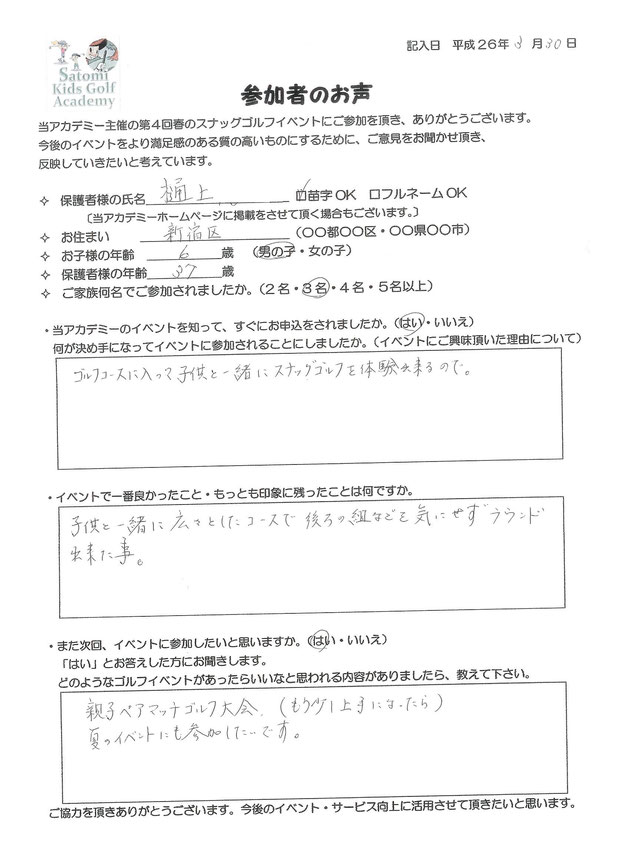 記入日 平成26年 3月30日
Satomi
Kids Golf
Academy
参加者のお声
当アカデミー主催の第4回春のスナッグゴルフイベントにご参加を頂き、ありがとうございます。
今後のイベントをより満足感のある質の高いものにするために、ご意見をお聞かせ頂き、
反映していきたいと考えています。
✧ 保護者様の氏名 樋上 ☑苗字OK □フルネームOK
〔当アカデミーホームページに掲載をさせて頂く場合もございます。〕
✧ お住まい 新宿区 (〇〇都〇〇区・〇〇県〇〇市)
✧ お子様の年齢 6 歳 (男の子・女の子)
✧ 保護者様の年齢 37 歳
✧ ご家族何名でご参加されましたか。(2名・3名・4名・5名以上)
・当アカデミーのイベントを知って、すぐにお申込をされましたか。(はい・いいえ)
何が決め手になってイベントに参加されることにしましたか。(イベントにご興味頂いた理由について)
ゴルフコースに入って子供と一緒にスナッグゴルフを体験出来るので。
・イベントで一番良かったこと・もっとも印象に残ったことは何ですか。
子供と一緒に広々としたコースで後ろの組などを気にせずラウンド
出来た事。
・また次回、イベントに参加したいと思いますか。(はい・いいえ)
「はい」とお答えした方にお聞きします。
どのようなゴルフイベントがあったらいいなと思われる内容がありましたら、教えて下さい。
親子ペアマッチゴルフ大会、(もう少し上手になったら)
夏のイベントにも参加したいです。
ご協力を頂きありがとうございます。今後のイベント・サービス向上に活用させて頂きたいと思います。